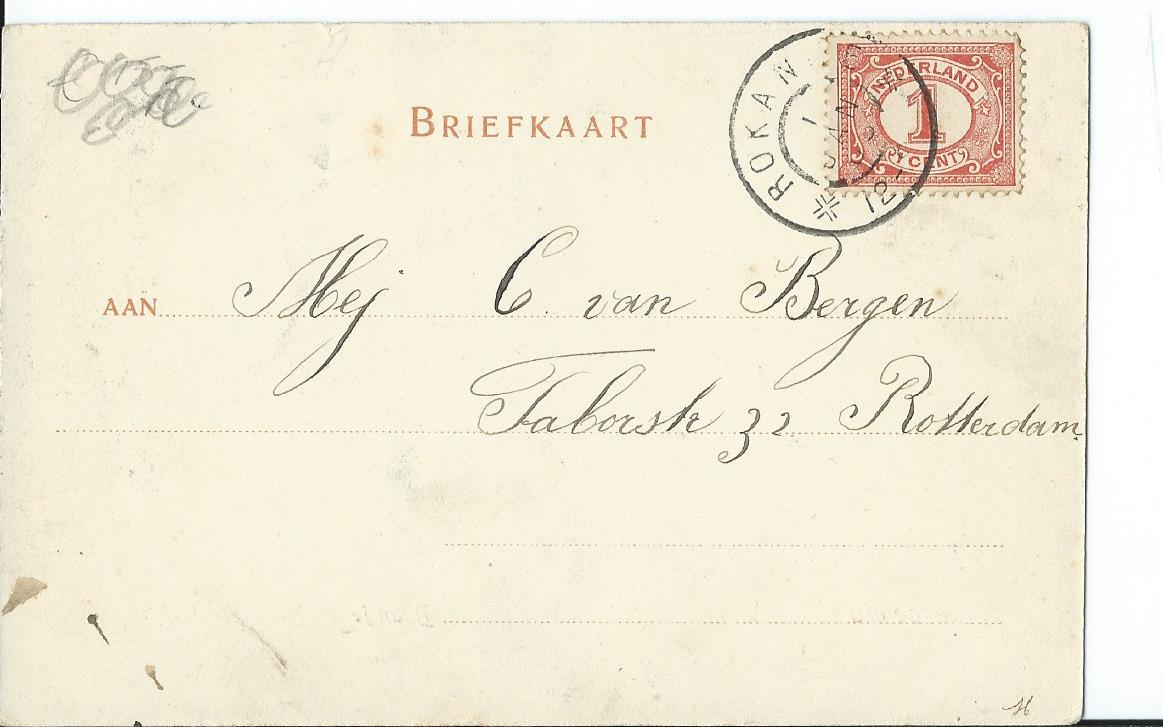 BRIEFKAART
ROKAN
12-1
NEDERLAND
1
1 CENT
AAN Mej C. van Bergen
Taborstr 32 Rotterdam